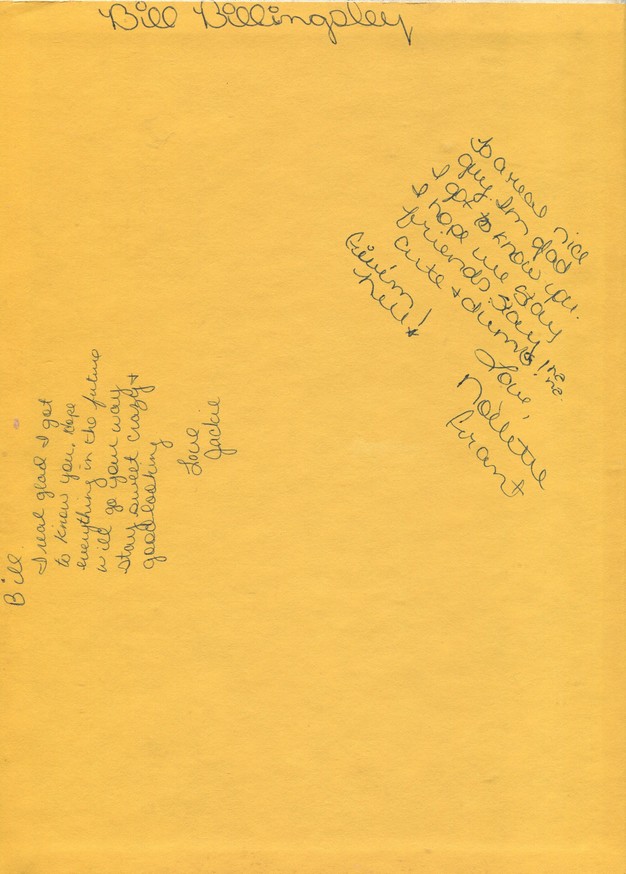 Bill Billingsley
To a real nice
guy. Im glad
I got to know you.
I hope we stay
friends. Stay
cute + dumb! ha ha
Give'm
hell!
Love,
Nollette
Bill
I real glad I got
to know you, Hope
everything in the future
will go your way
stay sweet crazy +
good looking
Love
Jackie